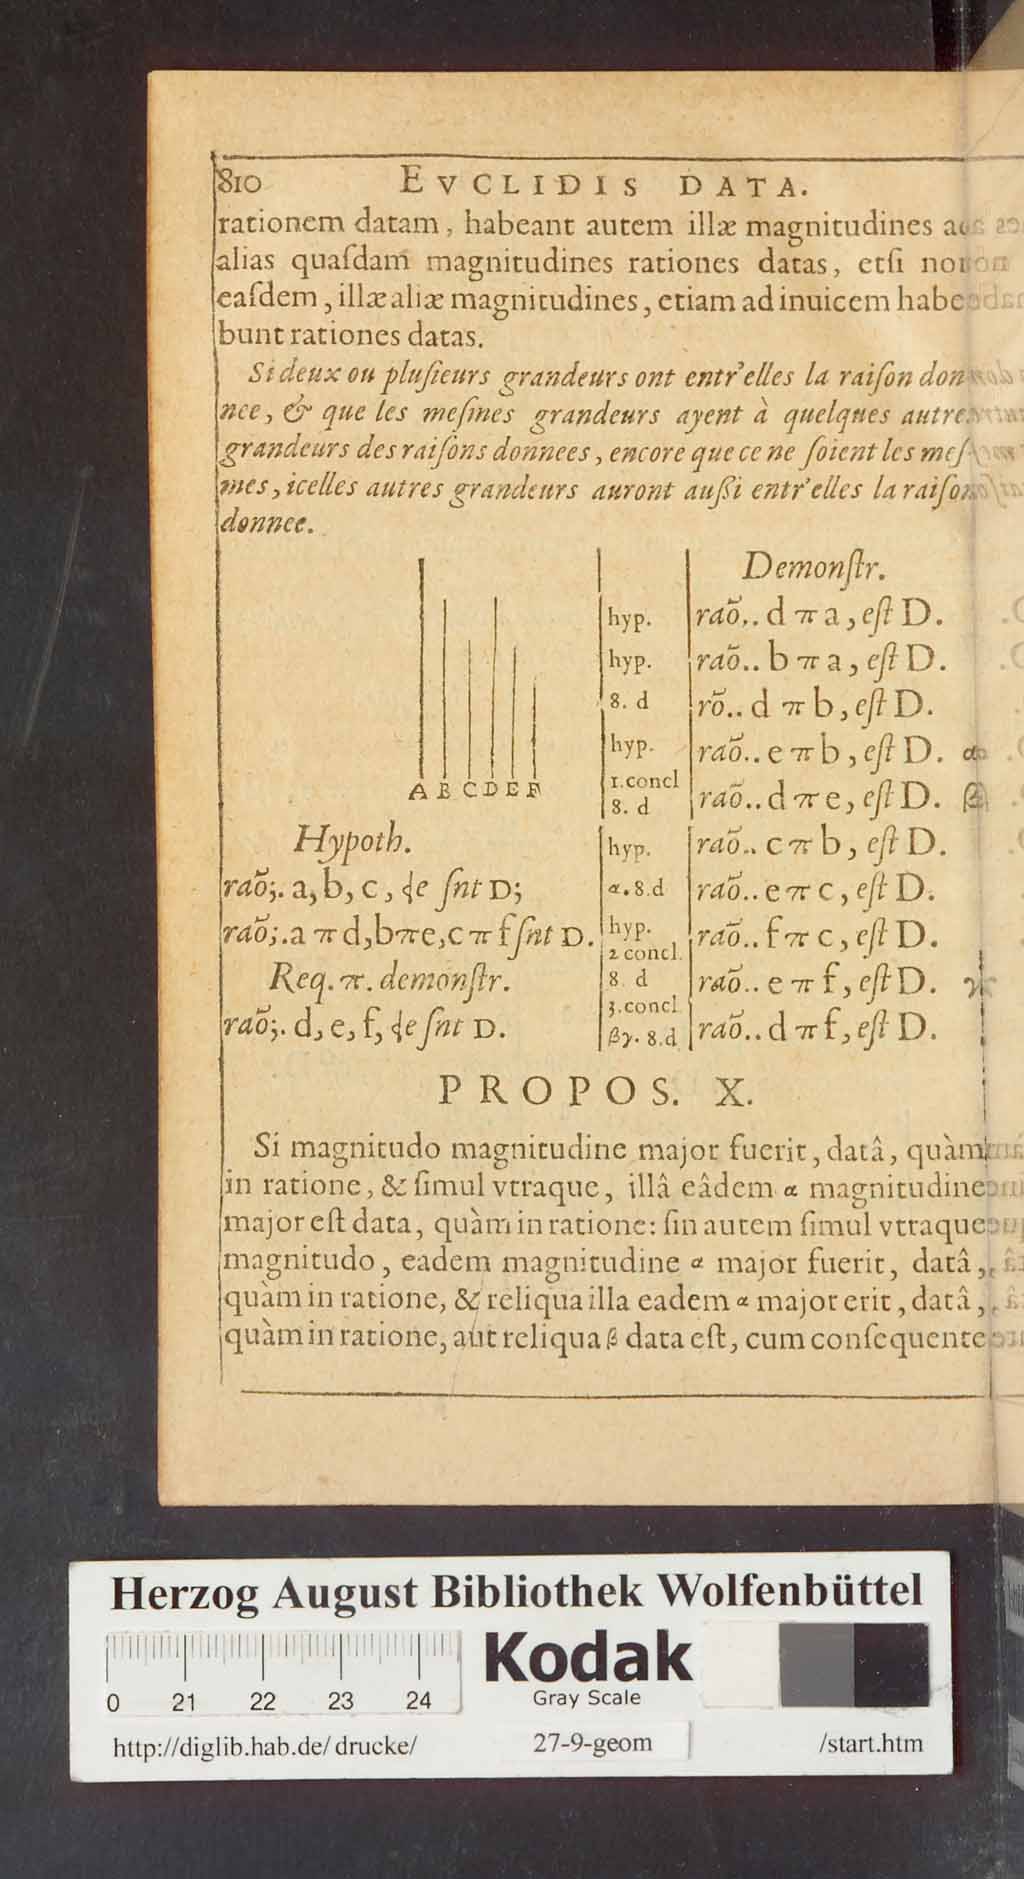 810 EVCLIDIS DATA.
rationem datam, habeant autem illæ magnitudines
alias quaſdam magnitudines rationes datas, etſi non
eaſdem, illæ aliæ magnitudines, etiam ad inuicem habe
bunt rationes datas.
Si deux ou pluſieurs grandeurs ont entr'elles la raiſon don
nee, & que les meſmes grandeurs ayent à quelques autres
grandeurs des raiſons donnees, encore que ce ne ſoient les meſ
mes, icelles autres grandeurs auront auſſi entr'elles la raiſon
donnee.
A B C D E F
Hypoth.
raõ;. a, b, c, ſnt D;
raõ;. a π d, b π e, c π f ſnt D.
Req. π. demonſtr.
raõ;. d, e, f, ſnt D.
Demonſtr.
hyp. raõ.. d π a, eſt D.
hyp. raõ.. b π a, eſt D.
8. d rõ.. d π b, eſt D.
hyp. raõ.. e π b, eſt D. α
1. concl
8. d raõ.. d π e, eſt D. β
hyp. raõ.. c π b, eſt D.
α. 8. d raõ.. e π c, eſt D.
hyp. raõ.. f π c, eſt D.
2 concl.
8 d raõ.. e π f, eſt D. γ
3. concl
βγ. 8. d raõ.. d π f, eſt D.
PROPOS. X.
Si magnitudo magnitudine major fuerit, datâ, quàm
in ratione, & ſimul vtraque, illâ eâdem α magnitudine
major eſt data, quàm in ratione: ſin autem ſimul vtraque
magnitudo, eadem magnitudine α major fuerit, datâ,
quàm in ratione, & reliqua illa eadem α major erit, datâ,
quàm in ratione, aut reliqua β data eſt, cum conſequente
Herzog August Bibliothek Wolfenbüttel
0 21 22 23 24
Kodak
Gray Scale
http://diglib.hab.de/drucke/ 27-9-geom /start.htm